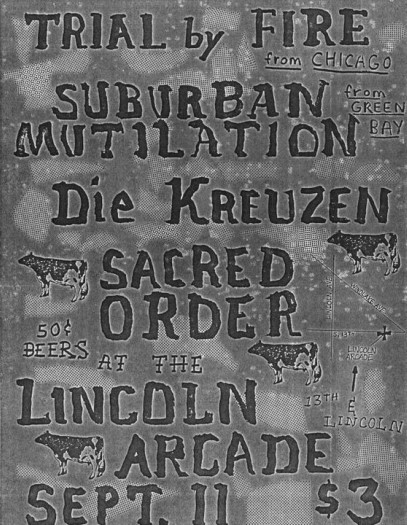 TRIAL by FIRE
from CHICAGO
SUBURBAN
from GREEN BAY
MUTILATION
Die KREUZEN
SACRED
ORDER
50¢
BEERS
AT THE
LINCOLN
ARCADE
13TH
&
LINCOLN
LINCOLN
ARCADE
SEPT. 11 $3